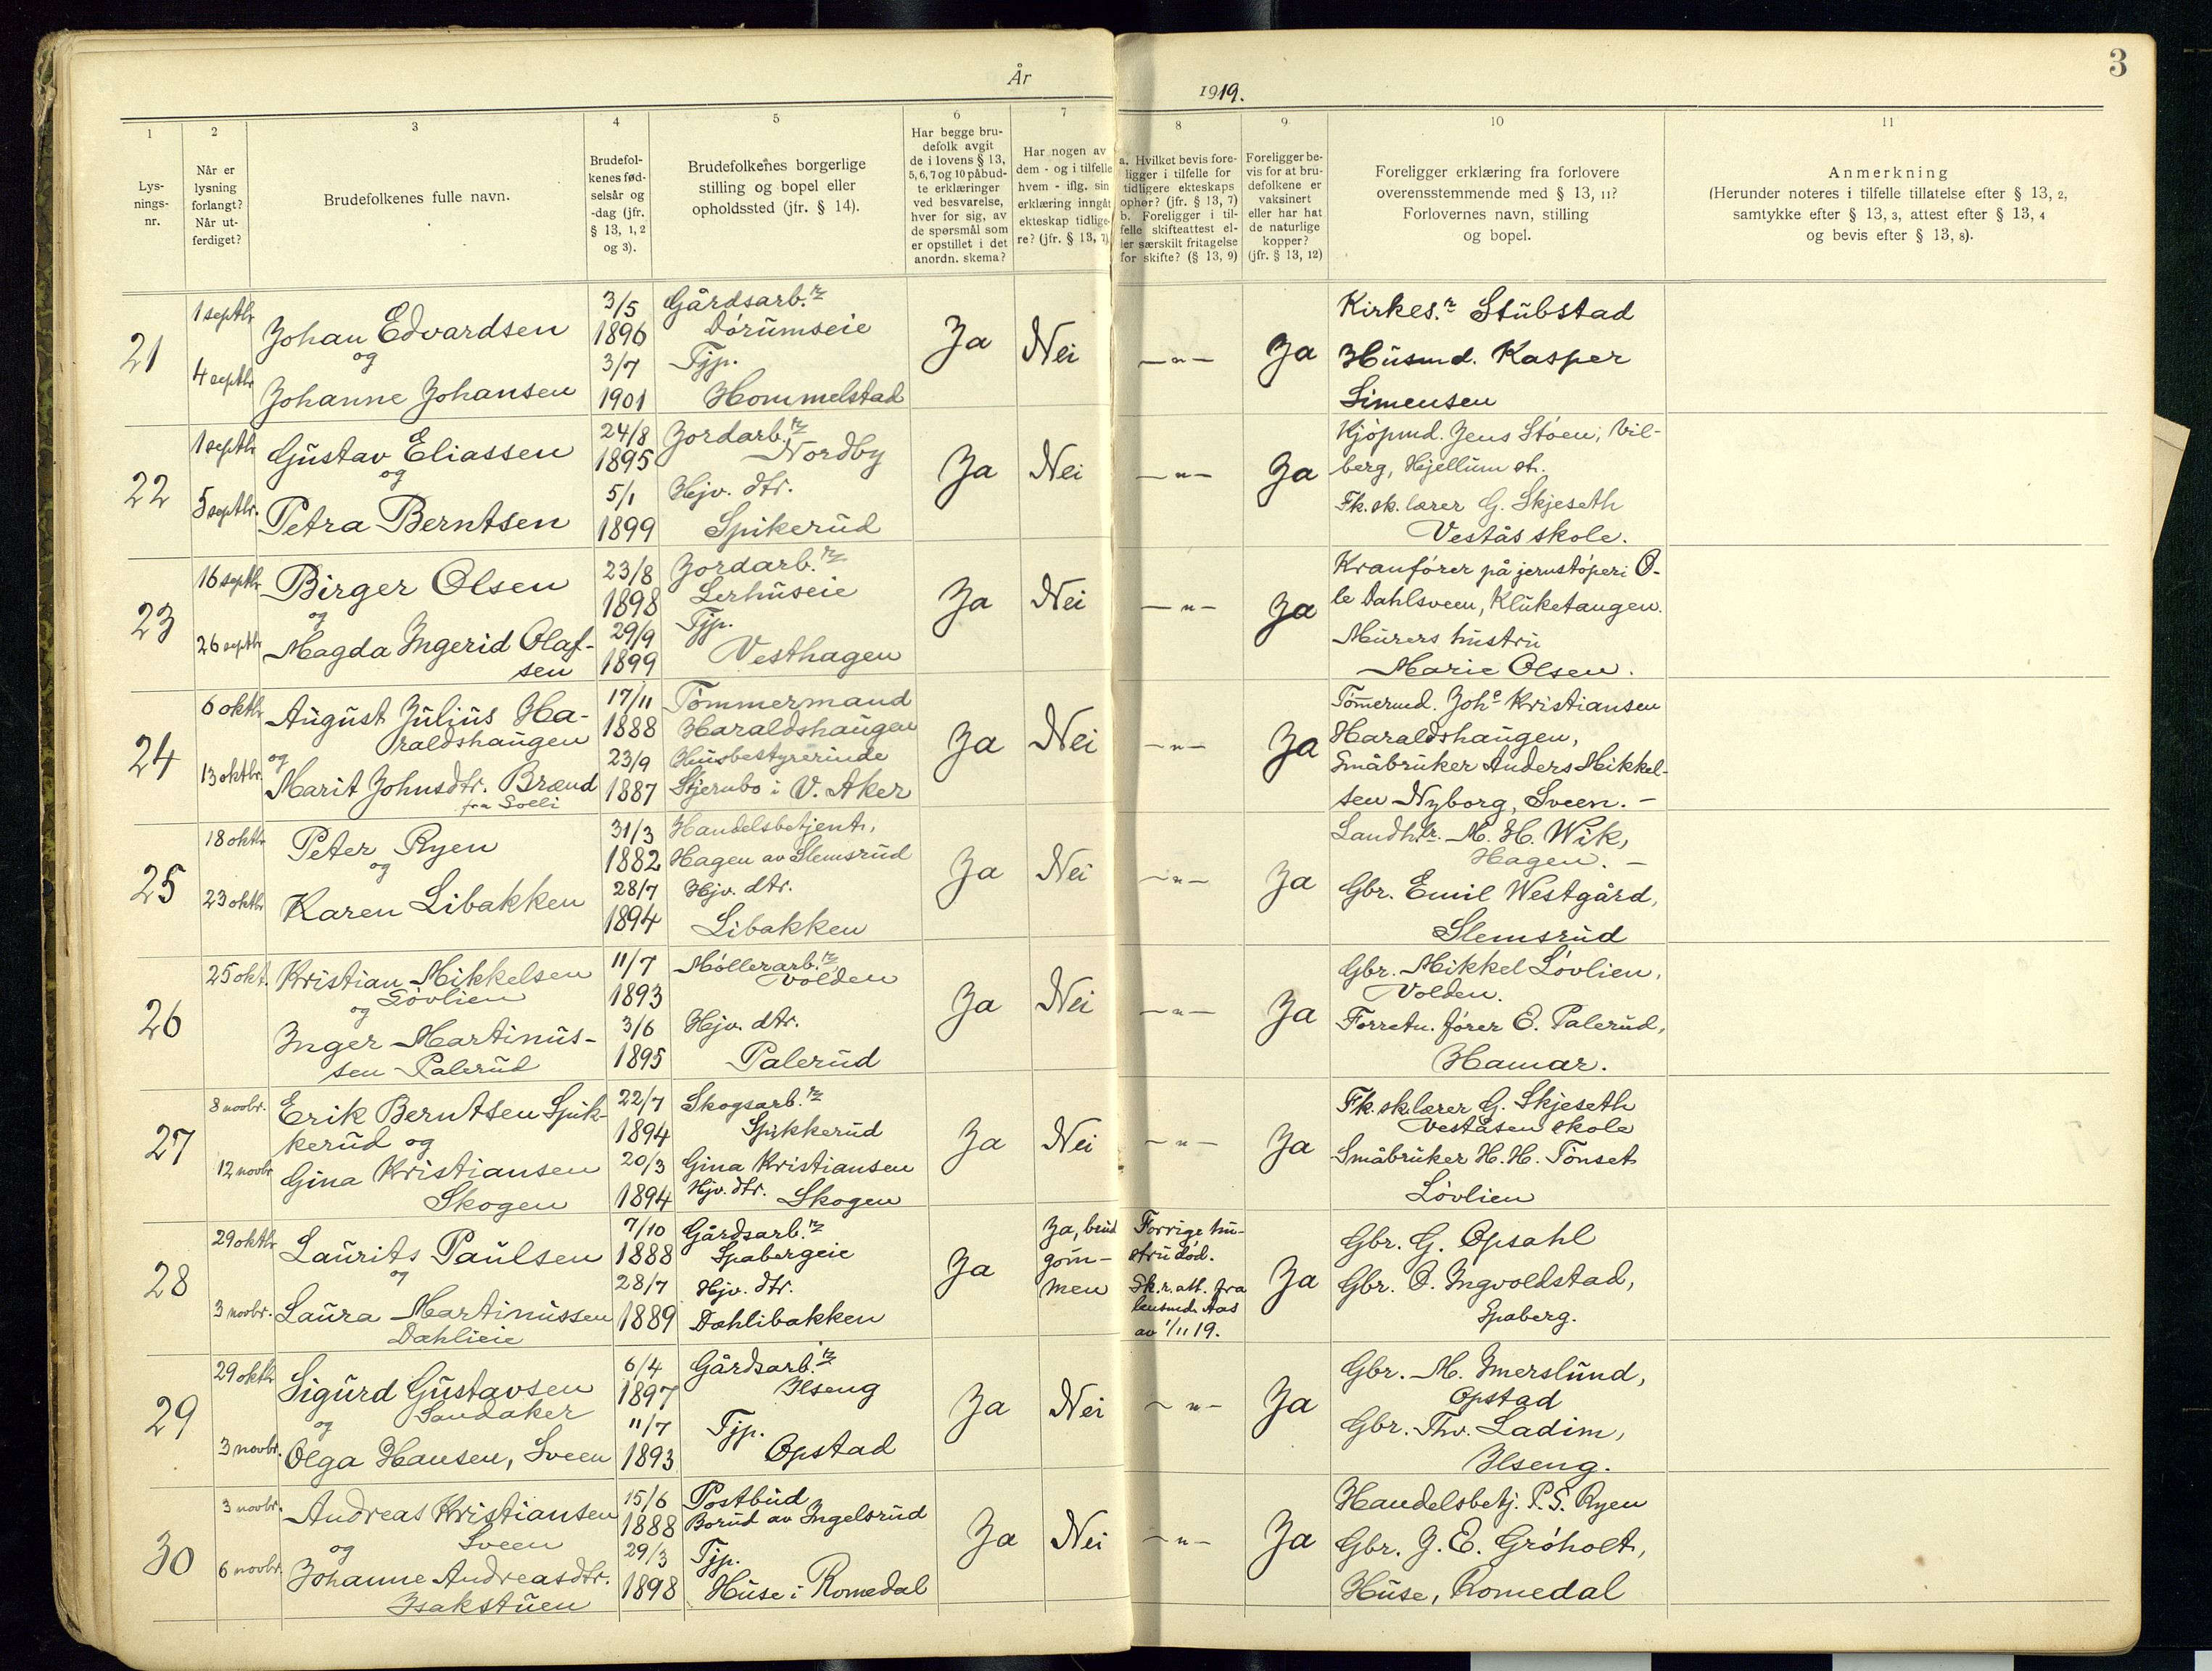 3
År 1919.
1
2
3
4
5
6
7
8
9
10
11
Lys-
nings-
nr.
Når er
lysning
forlangt?
Når ut-
ferdiget?
Brudefolkenes fulle navn.
Brudefol-
kenes fød-
selsår og
-dag (jfr.
§ 13, 1, 2
og 3).
Brudefolkenes borgerlige
stilling og bopel eller
opholdssted (jfr. § 14).
Har begge bru-
defolk avgit
de i lovens § 13,
5, 6, 7 og 10 påbud-
te erklæringer
ved besvarelse,
hver for sig, av
de spørsmål som
er opstillet i det
anordn. skema?
Har nogen av
dem - og i tilfelle
hvem - iflg. sin
erklæring inngåt
ekteskap tidlige-
re? (jfr. § 13, 7)
a. Hvilket bevis fore-
ligger i tilfelle for
tidligere ekteskaps
ophør? (jfr. § 13, 7)
b. Foreligger i til-
felle skifteattest el-
ler særskilt fritagelse
for skifte? (§ 13, 9)
Foreligger be-
vis for at bru-
defolkene er
vaksinert
eller har hat
de naturlige
kopper?
(jfr. § 13, 12)
Foreligger erklæring fra forlovere
overensstemmende med § 13, 11?
Forlovernes navn, stilling
og bopel.
Anmerkning
(Herunder noteres i tilfelle tillatelse efter § 13, 2,
samtykke efter § 13, 3, attest efter § 13, 4
og bevis efter § 13, 8).
21
1 septbr
4 septbr
Johan Edvardsen
og
Johanne Johansen
3/5
1896
3/7
1901
Gårdsarb.r
Dørumseie
Tjp.
Hommelstad
Ja
Nei
—„—
Ja
Kirkes.r Stubstad
Husmd. Kasper
Simensen
22
1 septbr
5 septbr.
Gustav Eliassen
og
Petra Berntsen
24/8
1895
5/1
1899
Jordarb.r
Nordby
Hjv. dtr.
Spikerud
Ja
Nei
—„—
Ja
Kjøpmd. Jens Støen, Vil-
berg, Hjellum st.
Fk. sk. lærer G. Skjeseth
Vestås skole.
23
16 septbr
26 septbr
Birger Olsen
og
Magda Ingerid Olaf-
sen
23/8
1898
29/9
1899
Jordarb.r
Lerhuseie
Tjp.
Vesthagen
Ja
Nei
—„—
Ja
Kranfører på jernstøperi O-
le Dahlsveen, Kluketangen.
Murers hustru
Marie Olsen.
24
6 oktbr
13 oktbr.
August Julius Ha-
raldshaugen
og
Marit Johnsdtr. Brænd
fra Solli
17/11
1888
23/9
1887
Tømmermand
Haraldshaugen
Husbestyrerinde
Stjernbo i V. Aker
Ja
Nei
—„—
Ja
Tømermd. Joh.s Kristiansen
Haraldshaugen,
Småbruker Anders Mikkel-
sen Nyborg, Sveen. –
25
18 oktbr
23 oktbr
Peter Ryen
og
Karen Libakken
31/3
1882
28/7
1894
Handelsbetjent,
Hagen av Slemsrud
Hjv. dtr.
Libakken
Ja
Nei
—„—
Ja
Landh.lr. M. H. Wik,
Hagen. –
Gbr. Emil Westgård,
Slemsrud
26
25 okt.
Kristian Mikkelsen
Løvlien
og
Inger Martinus-
sen Palerud
11/7
1893
3/6
1895
Møllerarb.r
Volden
Hjv. dtr.
Palerud
Ja
Nei
—„—
Ja
Gbr. Mikkel Løvlien,
Volden.
Forretn. fører E. Palerud,
Hamar.
27
8 novbr.
12 novbr
Erik Berntsen Spik-
kerud og
Gina Kristiansen
Skogen
22/7
1894
20/3
1894
Skogsarb.r
Spikkerud
Gina Kristiansen
Hjv. dtr. Skogen
Ja
Nei
—„—
Ja
Fk. sk. lærer G. Skjeseth
Veståsen skole
Småbruker H. H. Tønset
Løvlien
28
29 oktbr
3 novbr.
Laurits Paulsen
og
Laura Martinussen
Dahlieie
7/10
1888
28/7
1889
Gårdsarb.r
Spabergeie
Hjv. dtr.
Dahlibakken
Ja
Ja, brud
gom-
men
Forrige hu-
stru død.
Sk.r. att. fra
lensmd. Aas
av 1/11 19.
Ja
Gbr. G. Opsahl
Gbr. O. Ingvoldstad,
Spaberg.
29
29 oktbr
3 novbr.
Sigurd Gustavsen
Sandaker
og
Olga Hansen, Sveen
6/4
1897
11/7
1893
Gårdsarb.r
Ilseng
Tjp.
Opstad
Ja
Nei
—„—
Ja
Gbr. M. Imerslund,
Opstad
Gbr. Thv. Ladim,
Ilseng.
30
3 novbr.
6 novbr.
Andreas Kristiansen
Sveen
og
Johanne Andreasdtr.
Isakstuen
15/6
1888
29/3
1898
Postbud
Borud av Ingelsrud
Tjp.
Huse i Romedal
Ja
Nei
—„—
Ja
Handelsbetj. P. S. Ryen
Gbr. J. E. Grøholt,
Huse, Romedal